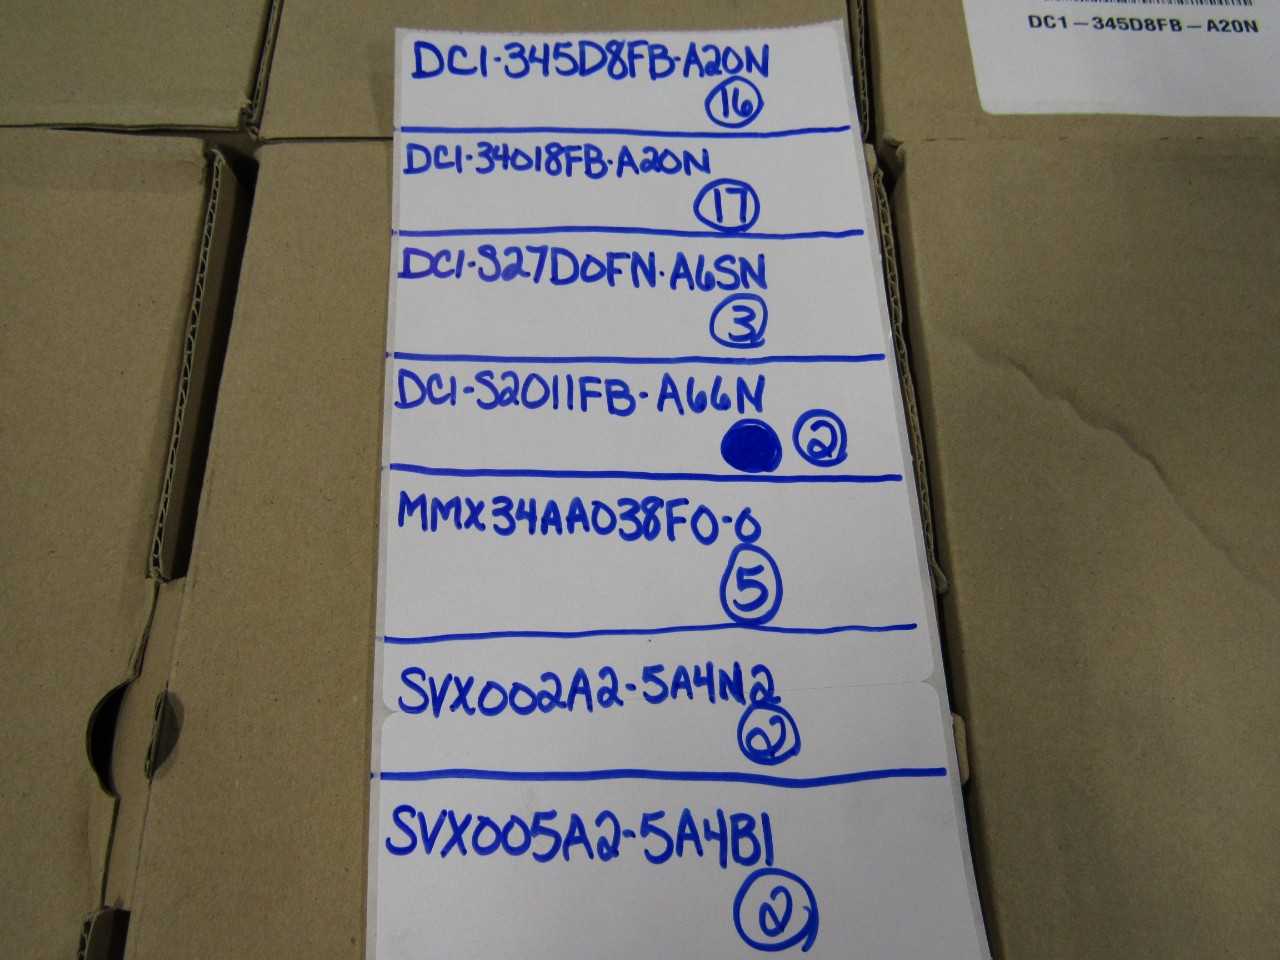 DC1-345D8FB-A20N
DC1-345D8FB-A20N
16
DC1-34018FB-A20N
17
DC1-S27D0FN-A6SN
3
DC1-S2011FB-A66N
2
MMX34AA038F0-0
5
SVX002A2-5A4N2
2
SVX005A2-5A4B1
2